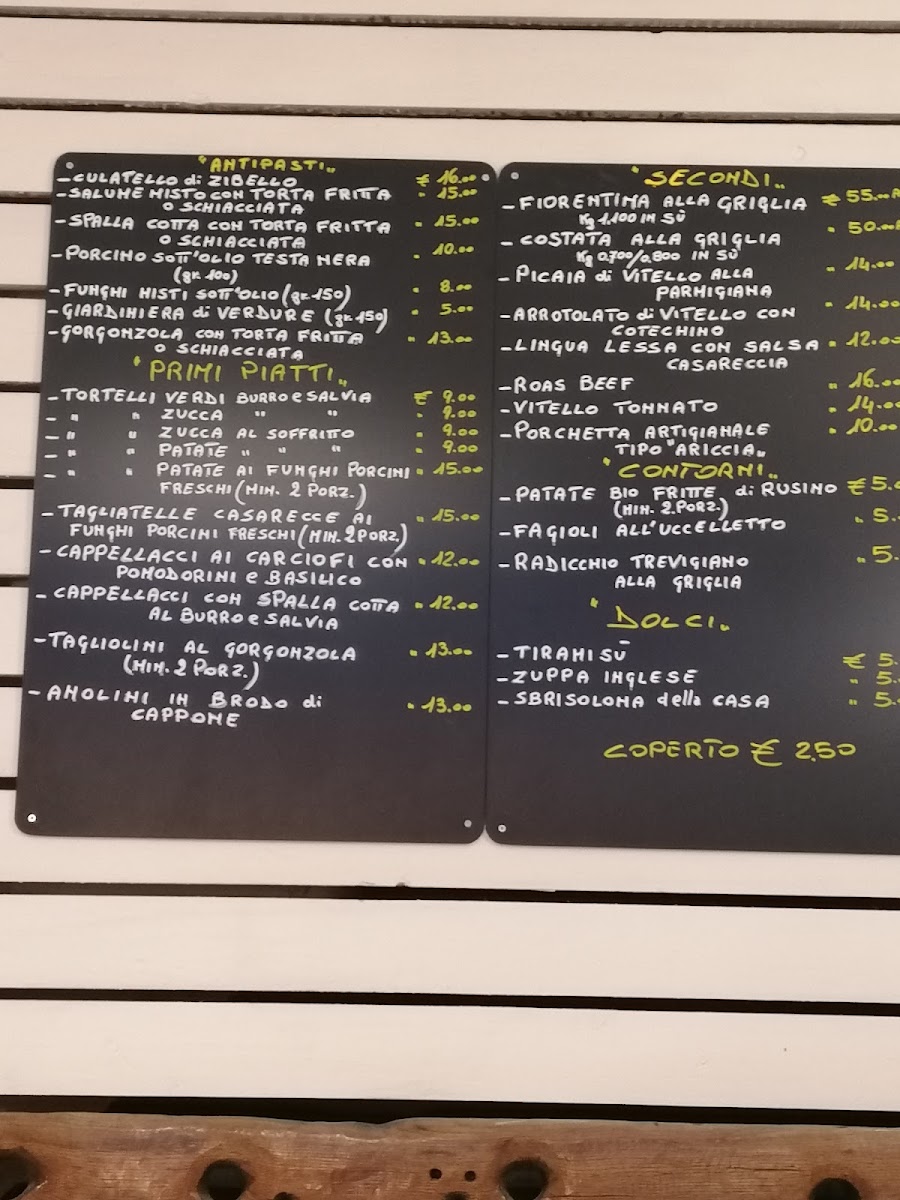 "ANTIPASTI"
-CULATELLO di ZIBELLO € 16.00
-SALUME MISTO CON TORTA FRITTA " 15.00
O SCHIACCIATA
-SPALLA COTTA CON TORTA FRITTA " 15.00
O SCHIACCIATA
-PORCINO SOTT'OLIO TESTA NERA " 10.00
(gr. 100)
-FUNGHI MISTI SOTT'OLIO (gr. 150) " 8.00
-GIARDINIERA di VERDURE (gr. 150) " 5.00
-GORGONZOLA CON TORTA FRITTA " 13.00
O SCHIACCIATA
"PRIMI PIATTI"
-TORTELLI VERDI BURRO e SALVIA € 9.00
- " " ZUCCA " " " 9.00
- " " ZUCCA AL SOFFRITTO " 9.00
- " " PATATE " " " " 9.00
- " " PATATE AI FUNGHI PORCINI " 15.00
FRESCHI (MIN. 2 PORZ.)
-TAGLIATELLE CASARECCE AI " 15.00
FUNGHI PORCINI FRESCHI (MIN. 2 PORZ.)
-CAPPELLACCI AI CARCIOFI CON " 12.00
POMODORINI e BASILICO
-CAPPELLACCI CON SPALLA COTTA " 12.00
AL BURRO e SALVIA
-TAGLIOLINI AL GORGONZOLA " 13.00
(MIN. 2 PORZ.)
-ANOLINI IN BRODO di " 13.00
CAPPONE
"SECONDI"
-FIORENTINA ALLA GRIGLIA € 55.00
Kg 1,100 IN SÙ
-COSTATA ALLA GRIGLIA " 50.00
Kg 0,700/0,800 IN SÙ
-PICAIA di VITELLO ALLA " 14.00
PARMIGIANA
-ARROTOLATO di VITELLO CON " 14.00
COTECHINO
-LINGUA LESSA CON SALSA " 12.00
CASARECCIA
-ROAS BEEF " 16.00
-VITELLO TONNATO " 14.00
-PORCHETTA ARTIGIANALE " 10.00
TIPO "ARICCIA"
"CONTORNI"
-PATATE BIO FRITTE di RUSINO € 5.
(MIN. 2 PORZ.)
-FAGIOLI ALL'UCCELLETTO " 5.
-RADICCHIO TREVIGIANO " 5.
ALLA GRIGLIA
"DOLCI"
-TIRAMISÙ € 5.
-ZUPPA INGLESE " 5.
-SBRISOLONA della CASA " 5.
COPERTO € 2.50